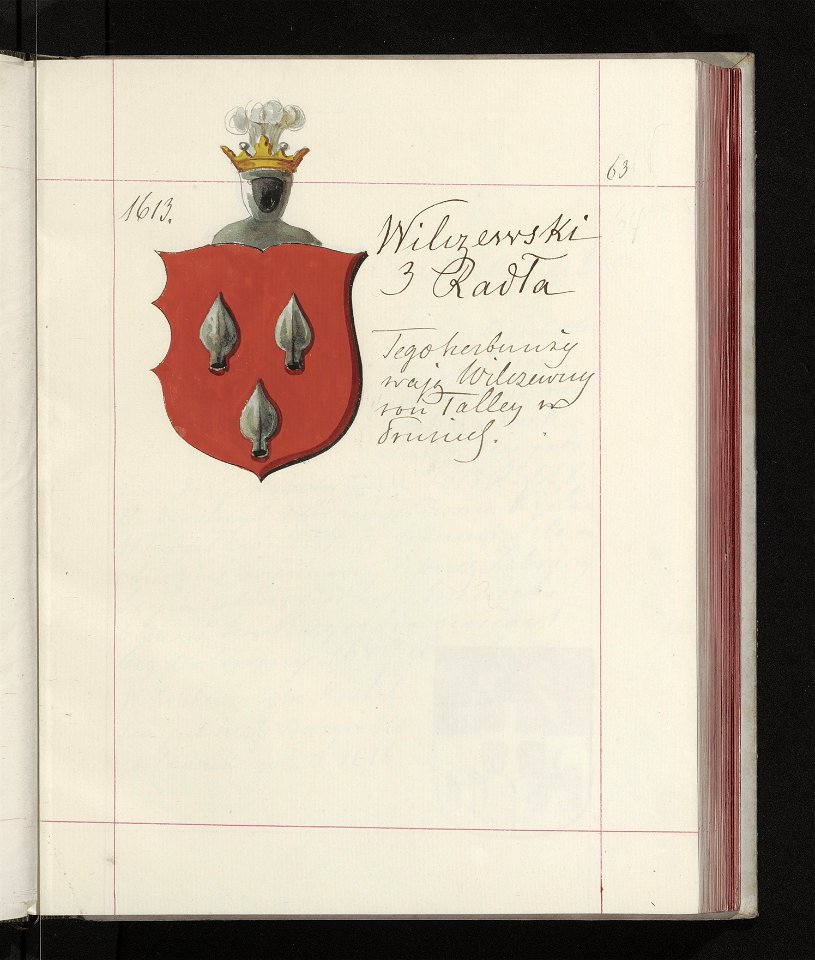 63
1613.
Wilczewski
3 Radła
Tego herbu uży
wają Wilczewscy
von Talley w
Prusiech.